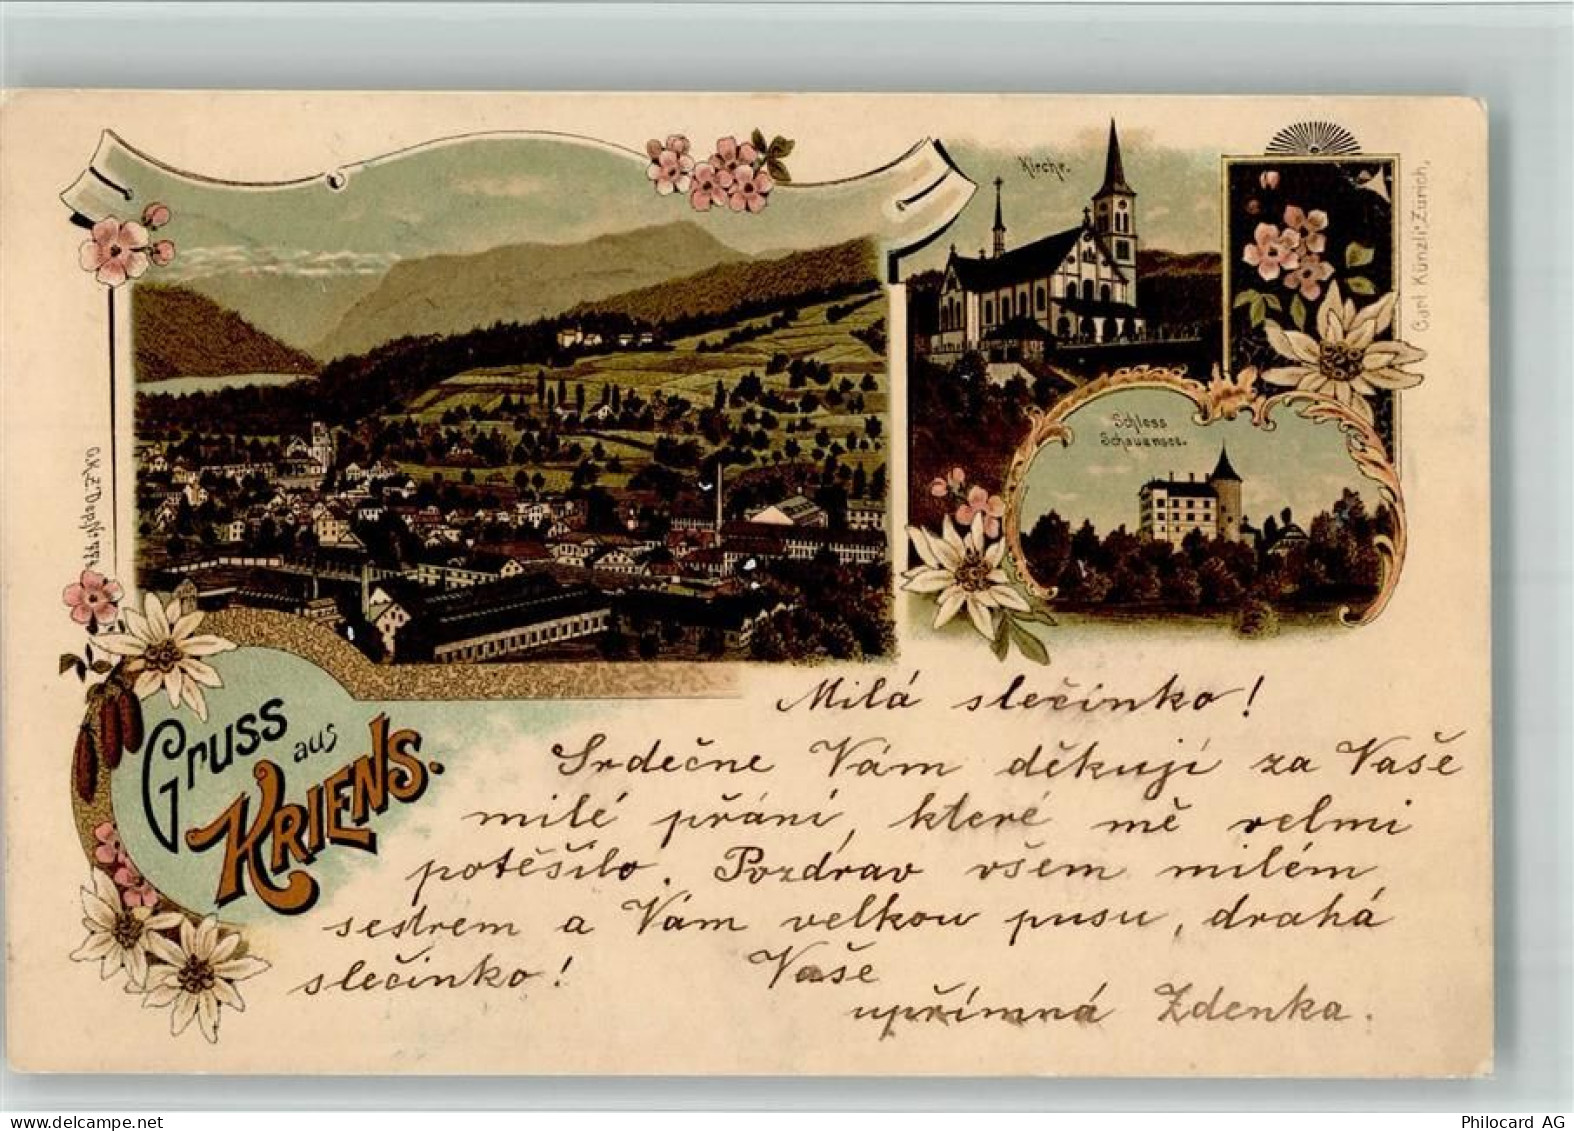 Kirche.
Carl Künzli, Zürich,
Schloss
Schauensee.
Gruss
aus
KRIENS.
Milá slečinko!
Srdečne Vám děkuji za Vaše
milé přání, které mě velmi
potěšilo. Pozdrav všem milém
sestrem a Vám velkou pusu, drahá
slečinko! Vaše
upřímná Zdenka.
Philocard AG